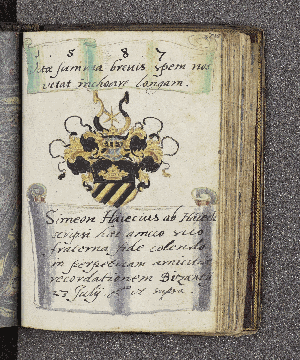 5 8 7
Vitæ summa brevis spem nos
vetat inchoare longam.
Simeon Haiecius ab Haieck
scripsi hæc amico suo
fraterna fide colendo
in perpetuam amicitiæ
recordationem
23 Julij ut supra.